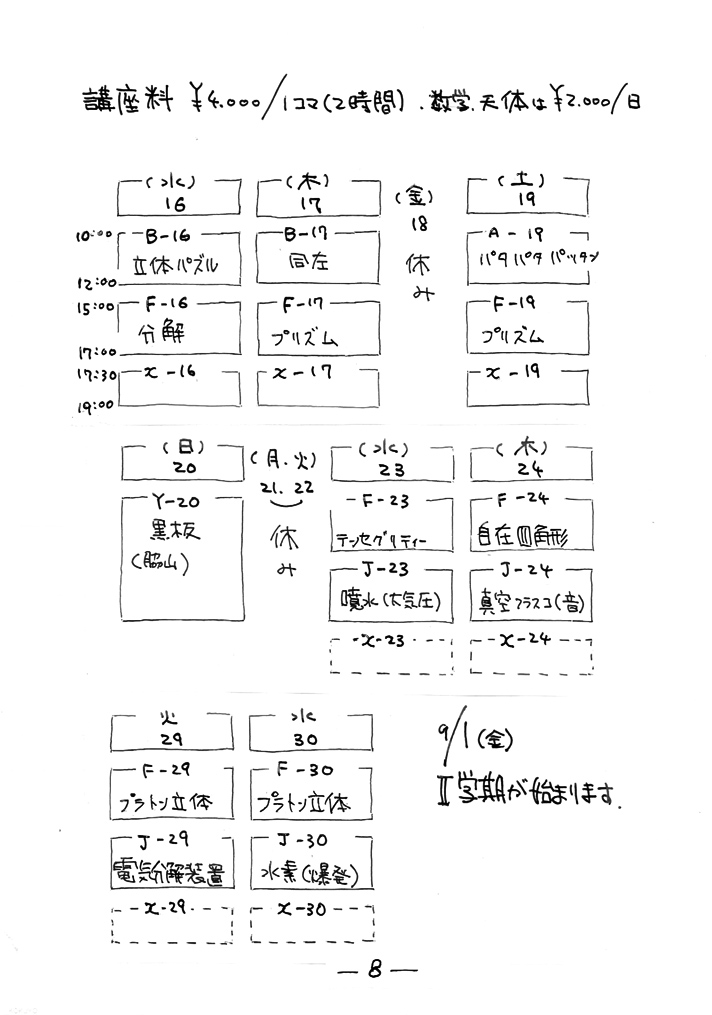 講座料 ¥4.000/1コマ(2時間)、数学、天体は¥2.000/日
(水) 16
(木) 17
(金) 18 休み
(土) 19
10:00
12:00
B-16 立体パズル
B-17 同左
A-19 パタパタ パッタン
15:00
17:00
F-16 分解
F-17 プリズム
F-19 プリズム
17:30
19:00
X-16
X-17
X-19
(日) 20
(月.火) 21.22 休み
(水) 23
(木) 24
Y-20 黒板 (脇山)
F-23 テンセグリティー
F-24 自在四角形
J-23 噴水(大気圧)
J-24 真空フラスコ(音)
X-23
X-24
火 29
水 30
9/1(金)
Ⅱ学期が始まります.
F-29 プラトン立体
F-30 プラトン立体
J-29 電気分解装置
J-30 水素(爆発)
X-29
X-30
— 8 —